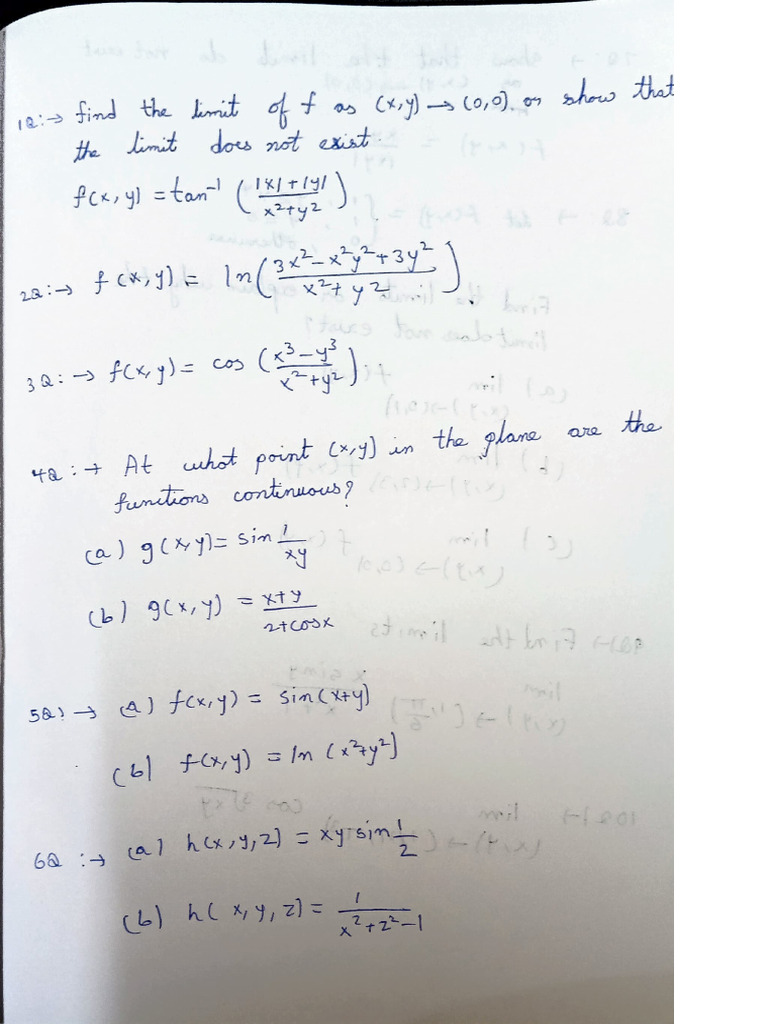 1Q:→ find the limit of f as (x,y)→(0,0) or show that
the limit does not exist.
f(x,y) = tan⁻¹ (|x|+|y| / x²+y²)
2Q:→ f(x,y) = ln(3x²-x²y²+3y² / x²+y²).
3Q:→ f(x,y) = cos (x³-y³ / x²+y²).
4Q:→ At what point (x,y) in the plane are the
functions continuous?
(a) g(x,y) = sin 1/xy
(b) g(x,y) = x+y / 2+cosx
5Q:→ (a) f(x,y) = sin(x+y)
(b) f(x,y) = ln (x²+y²)
6Q:→ (a) h(x,y,z) = xy sin 1/z
(b) h(x,y,z) = 1 / x²+z²-1